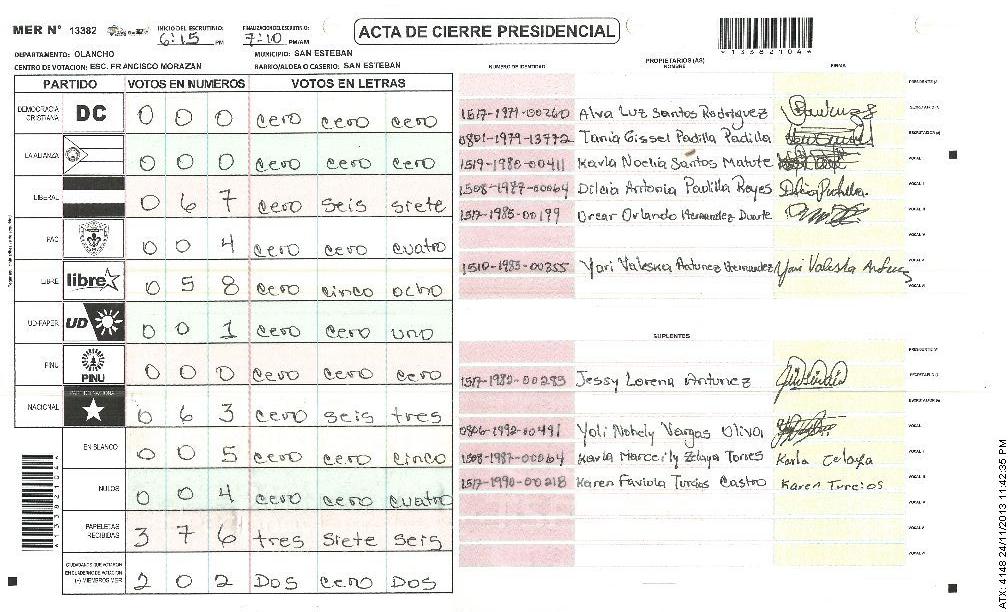 MER N° 13382 INICIO DEL ESCRUTINIO: 6:15 PM FINALIZACION ESCRUTINIO: 7:10 PM/AM ACTA DE CIERRE PRESIDENCIAL
DEPARTAMENTO: OLANCHO MUNICIPIO: SAN ESTEBAN
CENTRO DE VOTACION: ESC. FRANCISCO MORAZAN BARRIO/ALDEA O CASERIO: SAN ESTEBAN
PARTIDO VOTOS EN NUMEROS VOTOS EN LETRAS
DEMOCRACIA CRISTIANA DC 0 0 0 cero cero cero
LA ALIANZA 0 0 0 cero cero cero
LIBERAL 0 6 7 cero seis siete
PAC 0 0 4 cero cero cuatro
LIBRE libre 0 5 8 cero cinco ocho
UD-FAPER UD 0 0 1 cero cero uno
PINU PINU 0 0 0 cero cero cero
NACIONAL 0 6 3 cero seis tres
EN BLANCO 0 0 5 cero cero cinco
NULOS 0 0 4 cero cero cuatro
PAPELETAS RECIBIDAS 3 7 6 tres siete seis
CIUDADANOS QUE VOTARON EN CUADERNO DE VOTACION (+) MIEMBROS MER 2 0 2 Dos cero Dos
*13382104*
PROPIETARIOS (AS)
NUMERO DE IDENTIDAD NOMBRE FIRMA
PRESIDENTE (A)
1517-1971-00260 Alva Luz Santos Rodriguez SECRETARIO (A)
0801-1979-13772 Tania Gissel Padilla Padilla ESCRUTADOR (A)
1519-1980-00411 Karla Noelia Santos Matute VOCAL I
1508-1987-00064 Dilcia Antonia Padilla Reyes Dilcia Padilla VOCAL II
1517-1985-00199 Orcar Orlando Hernandez Duarte VOCAL III
VOCAL IV
1510-1983-00355 Yari Valeska Antunez Hernandez Yari Valeska Antunez VOCAL V
VOCAL VI
SUPLENTES
PRESIDENTE (A)
1517-1982-00283 Jessy Lorena Antunez SECRETARIO (A)
ESCRUTADOR (A)
0806-1992-00491 Yoli Nohely Vargas Oliva VOCAL I
1508-1987-00064 Karla Marceily Zelaya Torres Karla Zelaya VOCAL II
1517-1990-00218 Karen Faviola Turcios Castro Karen Turcios VOCAL III
VOCAL IV
VOCAL V
VOCAL VI
ATX: 4148 24/11/2013 11:42:35 PM